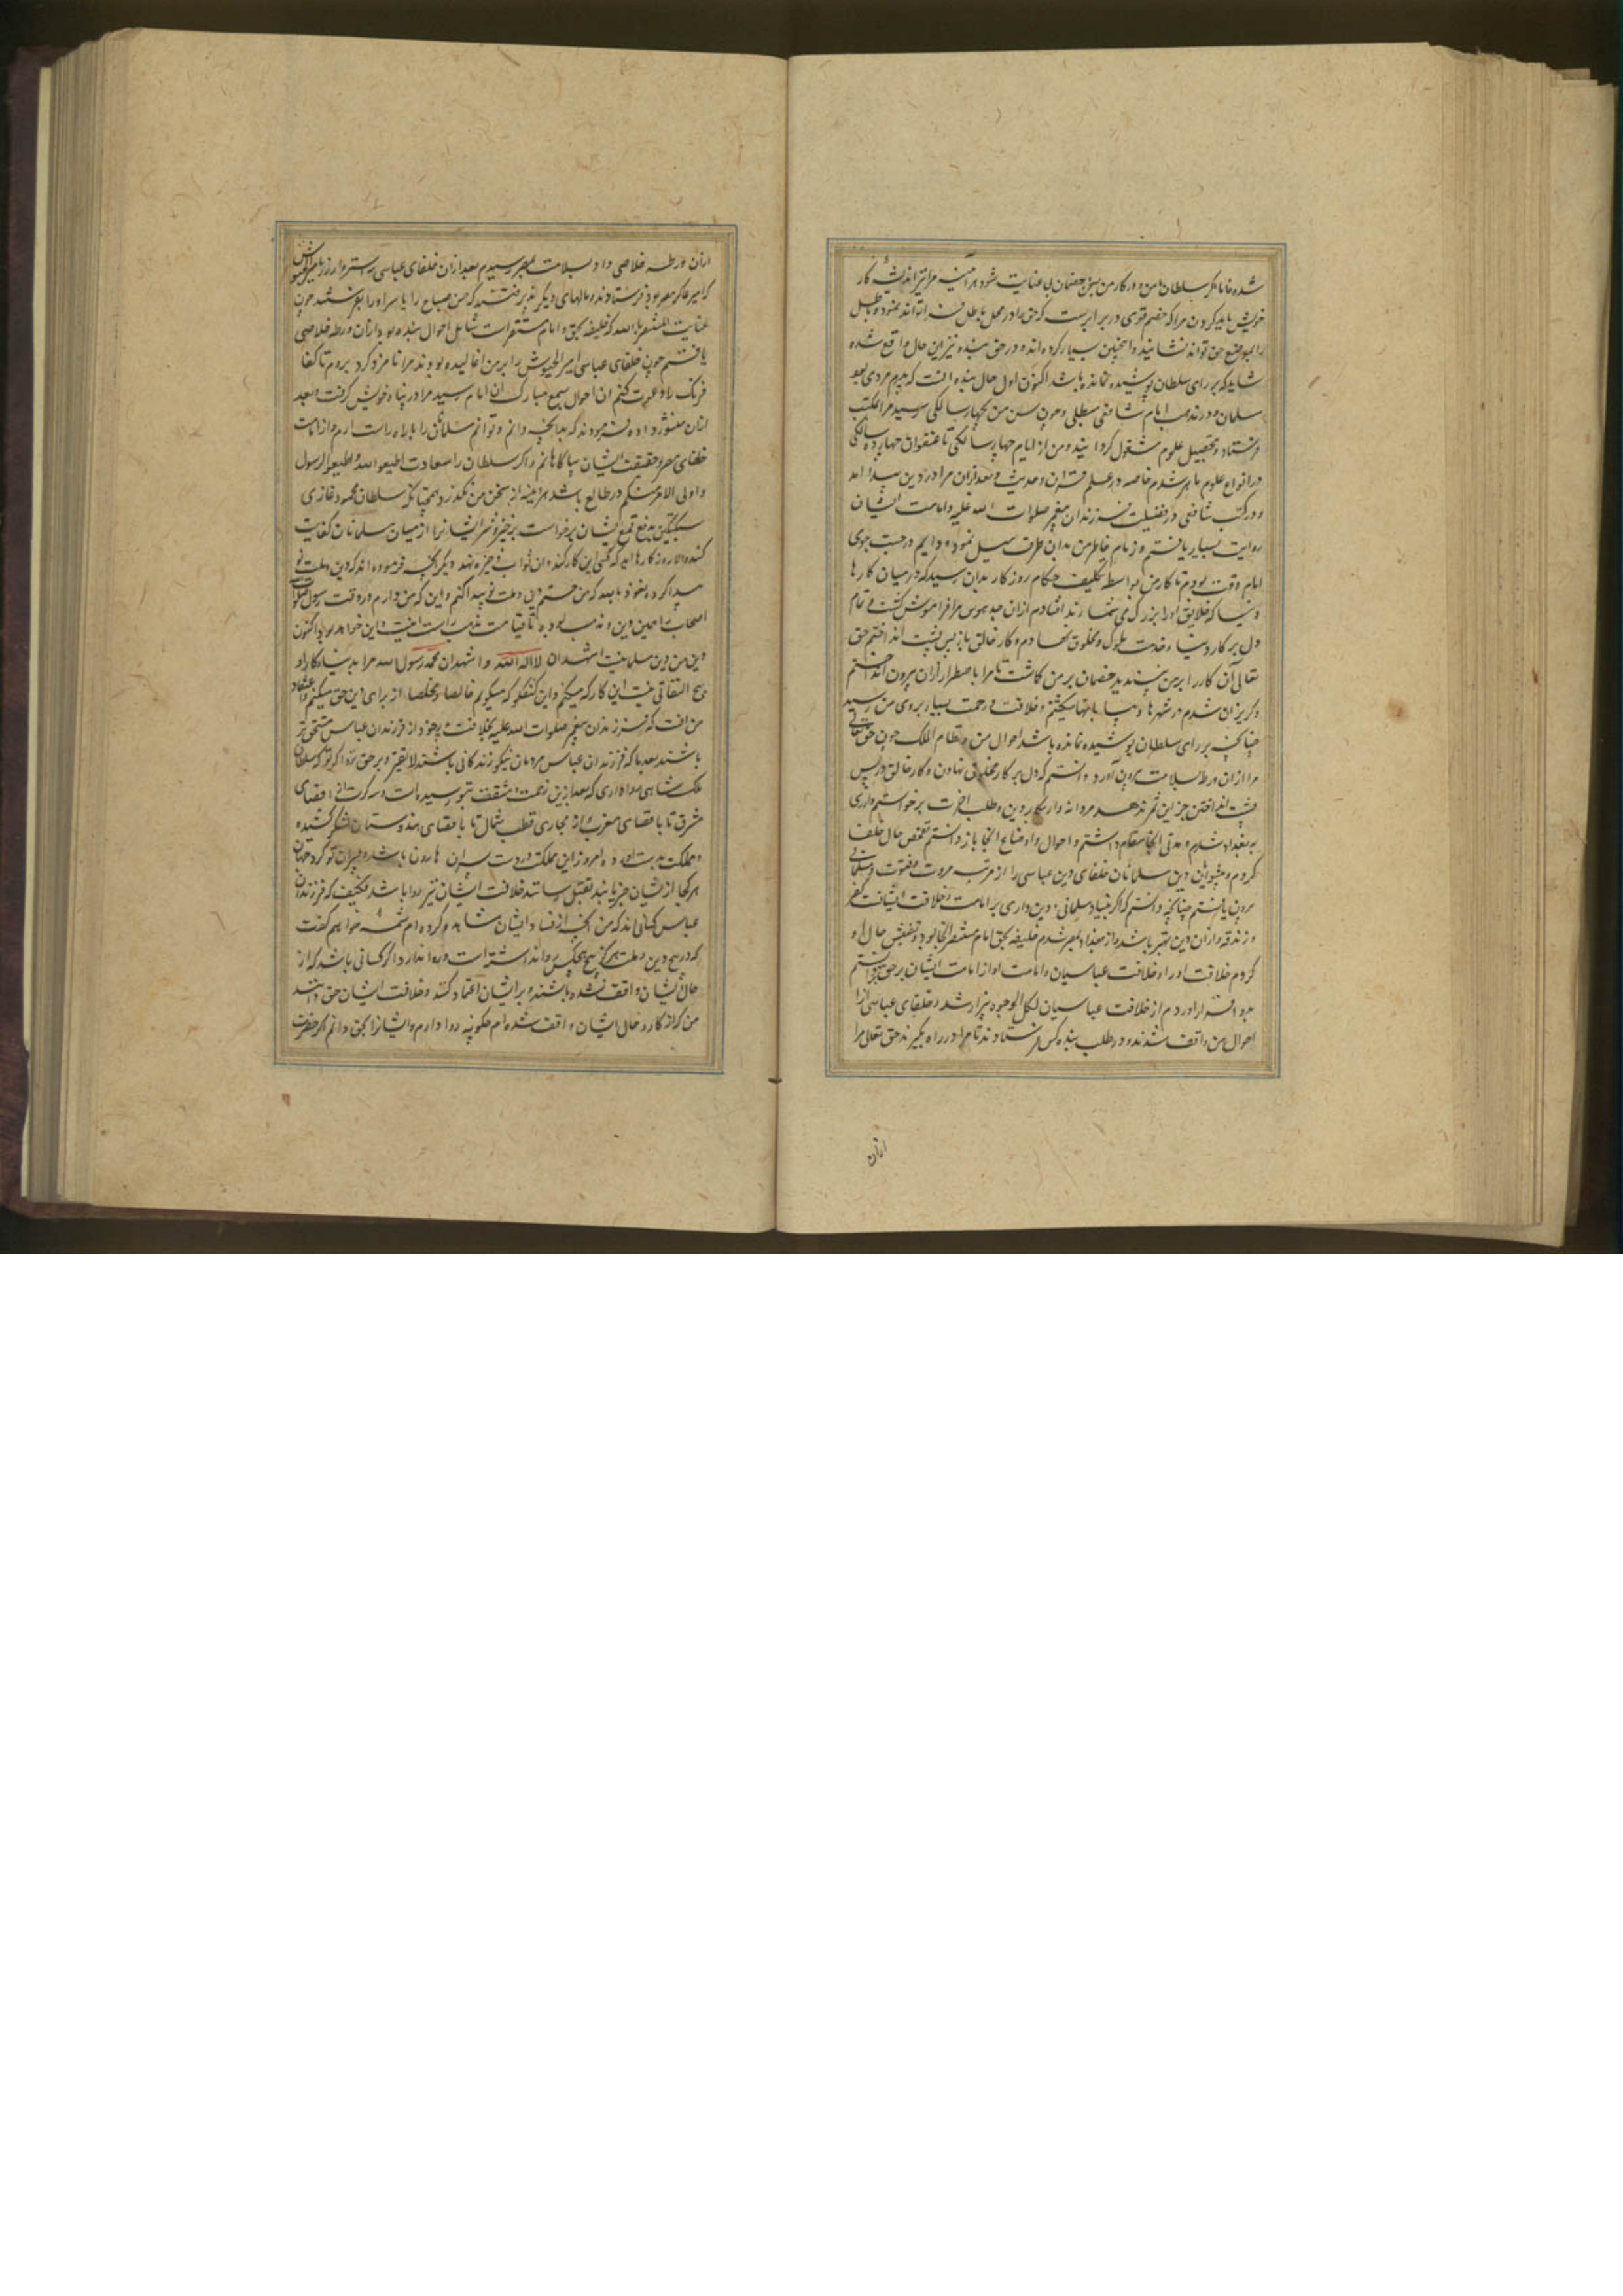 شده فاما اگر سلطان با من و در کار من بسخن خصمان بی عنایت شود هر آینه مرا نیز اندیشه کار
خویش باید کردن مرا که خصم قوی در برابرست که حق را در محل باطل تواند نمود و باطل
را بموضع حق تواند نشانید و اینچنین بسیار کرده اند و در حق بنده نیز این حال واقع شده
شاید که بر رای سلطان پوشیده نمانده باشد اکنون اول حال بنده آنست که پدرم مردی بود
مسلمان و در مذهب امام شافعی مطلبی و چون سن من بچهار سالگی رسید مرا بمکتب
فرستاد و بتحصیل علوم مشغول گردانید و من از ایام چهار سالگی تا عنفوان چهارده سالگی
در انواع علوم ماهر شدم خاصه در علم قرآن و حدیث و بعد ازان مرا درد دین پیدا آمد
و در کتب شافعی در فضیلت فرزندان پیغمبر صلوات الله علیه و امامت ایشان
روایت بسیار یافتم و زمام خاطر من بدان طرف میل نمود و دایم در جست جوی
امام وقت بودم تا کار من بواسطه تکلیف حکام روزگار بدان رسید که در میان کارها
دنیا که خلایق او را بزرگ می شمارند افتادم ازان جد هوس مرا فراموش گشت و تمام
دل بر کار دنیا و خدمت ملوک و مخلوق نهادم و کار خالق باز پس پشت انداختم حق
تعالی آن کار را بر من نپسندید خصمان بر من گماشت تا مرا باضطرار ازان بیرون انداختم
و گریزان شدم در شهرها و بیابانها میگشتم و خلافت و زحمت بسیار بروی من رسید
چنانکه بر رای سلطان پوشیده نمانده باشد احوال من و نظام الملک چون حق تعالی
مرا ازان ورطه بسلامت بیرون آورد دانستم که دل بر کار مخلوق نهادن و کار خالق در پس
پشت انداختن جز این ثمر ندهد مردانه وار بکار دین و طلب آخرت برخواستم و از ری
به بغداد شدم و مدتی آنجا مقام داشتم و احوال و اوضاع آنجا باز دانستم تفحص حال خلفا
کردم و پیشوایان دین مسلمانان خلفای دین عباسی را از مرتبه مروت و فتوت و مسلمانی
برون یافتم چنانچه دانستم که اگر بنیاد مسلمانی و دین داری بر امامت و خلافت ایشانست کفر
و زندقه ازان دین بهتر باشد و از بغداد بمصر شدم خلیفه بحق امام مستنصر آنجا بود تفتیش حال او
کردم خلافت او را و خلافت عباسیان و امامت او از امامت ایشان برحق تر دانستم
بدو اقرار آوردم از خلافت عباسیان لکل الوجوه بیزار شدم و خلفای عباسی از
احوال من واقف شدند و در طلب بنده کس فرستادند تا مرا در راه بگیرند حق تعالی مرا
ازان
ازان ورطه خلاصی داد و بسلامت بمصر رسیدم بعد ازان خلفای عباسی سه استروار زر بامیر الجیوش
که امیر عساکر مصر بود فرستادند و مالهای دیگر پذیرفتند که حسن صباح را یا سر او را بفرستند چون
عنایت المستنصر بالله که خلیفه بحق و امام مستقر است شامل احوال بنده بود ازان ورطه خلاصی
یافتم چون خلفای عباسی امیر الجیوش را بر من اغالیده بودند مرا نامزد کرد بروم تا کفار
فرنگ را دعوت کنم آن احوال بسمع مبارک آن امام رسید مرا در پناه خویش گرفت و بعد
ازان منشور داده فرمودند که بدانچه دانم و توانم مسلمانان را براه راست آرم و از امامت
خلفای مصر و حقیقت ایشان بیاگاهانم و اگر سلطان را سعادت اطیعوا الله و اطیعوا الرسول
و اولی الامر منکم در طالع باشد هر آینه از سخن من نگذرد همچنانکه سلطان محمود غازی
سبکتکین بدفع و قمع ایشان برخواست برخیزد و شر ایشانرا از میان مسلمانان کفایت
کند و الا روزگارها آید که کسی این کار کند و آن ثواب ذخیره نهد دیگر آنچه فرموده اند که دین و ملت نو
پیدا کرده نعوذ بالله که من حسنم دین و ملت نو پیدا کنم و این که من دارم در وقت رسول صلوات
اصحاب را همین دین و مذهب بوده و تا قیامت مذهب راست اینست و این خواهد بود اکنون
دین من دین مسلمانیست اشهد ان لا اله الا الله و اشهد ان محمد رسول الله مرا بدنیا و کار او
هیچ التفاتی نیست این کار که میکنم و این گفتگو که میگویم خالصا و مخلصا از برای دین حق میکنم و اعتقاد
من آنست که فرزندان پیغمبر صلوات الله علیه بخلافت پدر خود از فرزندان عباس مستحق تر
باشند بعد ما که فرزندان عباس مردمان نیکو زندگانی باشند لایقتر و بر حق تر اگر تو که سلطان
ملک شاهی روا داری که بعد ازین زحمت و مشقت بتو رسیده است و سه کرت از اقصای
مشرق تا باقصای مغرب و از مجاری قطب شمال تا باقصای هندوستان لشکر کشیده
و مملکت بدست آورده امروز این مملکت در دست پسران هارون باشد و پسران تو گرد جهان
هر کجا از ایشان خبر یابند بقتل رسانند خلافت ایشان نیز روا باشد فکیف که فرزندان
عباس کسانی اند که من آنچه از فساد ایشان مشاهده کرده ام شمه خواهم گفت
که در هیچ دین و ملت هرگز هیچکس روا نداشته است و روا ندارد اگر کسانی باشد که از
حال ایشان واقف نشده باشند و بر ایشان اعتماد کنند و خلافت ایشان حق دانند
من که از کار و حال ایشان واقف شده ام چگونه روا دارم و ایشانرا بحق دانم اگر حضرت